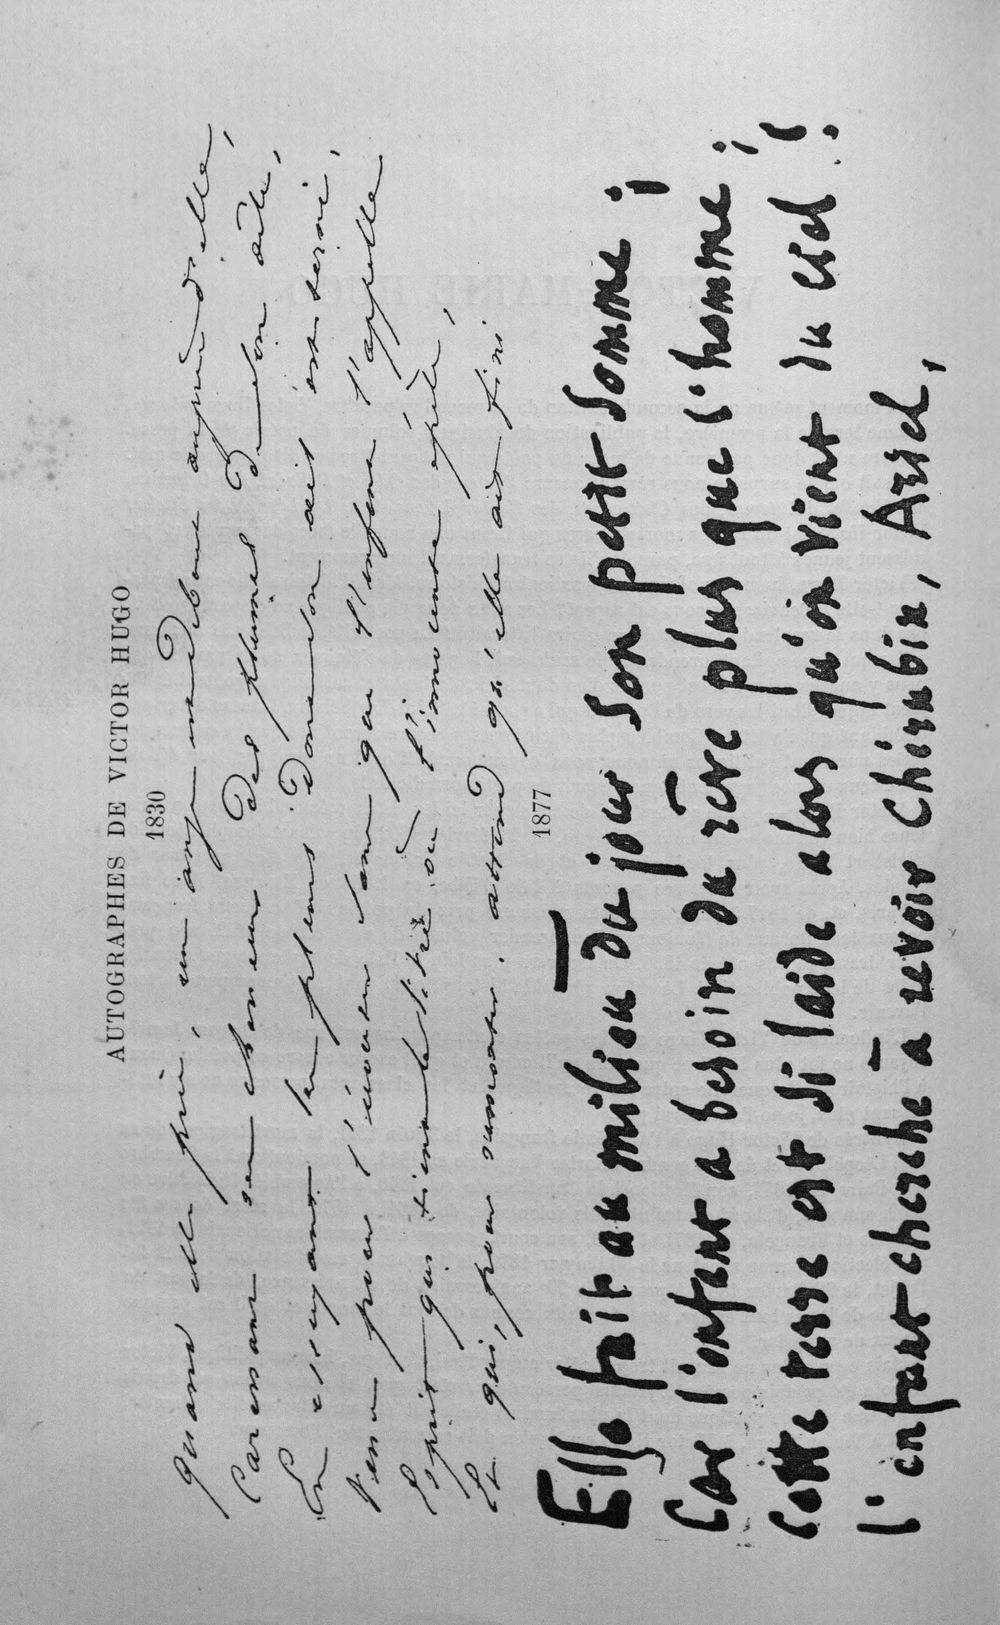 AUTOGRAPHES DE VICTOR HUGO
1830
Quand elle prie, un ange est debout auprès d'elle,
Caressant ses cheveux des plumes de son aile,
En essuyant les pleurs dont son œil est terni,
Venu pour l'écouter sans que l'enfant l'appelle
Esprit qui tient le livre où l'innocente épèle,
Et qui, pour remonter, attend qu'elle ait fini
1877
Elle fait au milieu du jour son petit somme ;
Car l'enfant a besoin du rêve plus que l'homme ;
Cette terre est si laide alors qu'on vient du ciel !
l'enfant cherche à revoir Chérubin, Ariel,